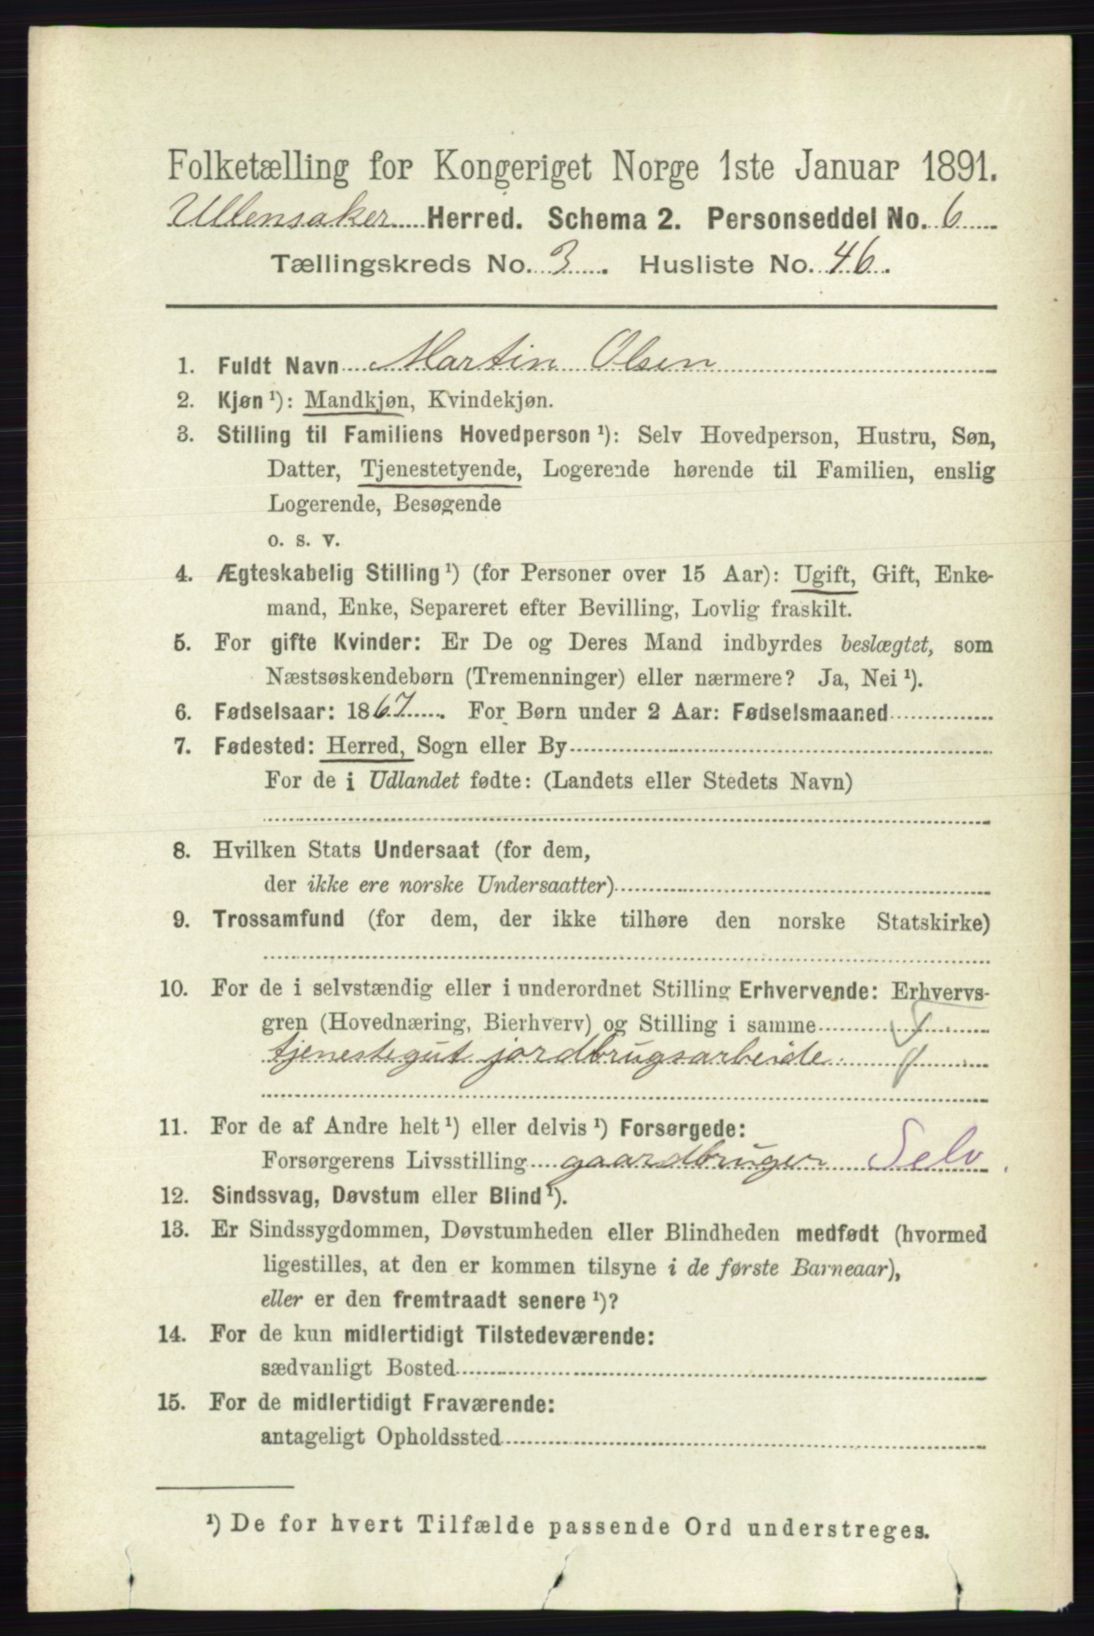 Folketælling for Kongeriget Norge 1ste Januar 1891.
Ullensaker Herred. Schema 2. Personseddel No. 6
Tællingskreds No. 3. Husliste No. 46.
1. Fuldt Navn Martin Olsen
2. Kjøn ¹): Mandkjøn, Kvindekjøn.
3. Stilling til Familiens Hovedperson ¹): Selv Hovedperson, Hustru, Søn,
Datter, Tjenestetyende, Logerende hørende til Familien, enslig
Logerende, Besøgende
o. s. v.
4. Ægteskabelig Stilling ¹) (for Personer over 15 Aar): Ugift, Gift, Enke-
mand, Enke, Separeret efter Bevilling, Lovlig fraskilt.
5. For gifte Kvinder: Er De og Deres Mand indbyrdes beslægtet, som
Næstsøskendebørn (Tremenninger) eller nærmere? Ja, Nei ¹).
6. Fødselsaar: 1867. For Børn under 2 Aar: Fødselsmaaned
7. Fødested: Herred, Sogn eller By
For de i Udlandet fødte: (Landets eller Stedets Navn)
8. Hvilken Stats Undersaat (for dem,
der ikke ere norske Undersaatter)
9. Trossamfund (for dem, der ikke tilhøre den norske Statskirke)
10. For de i selvstændig eller i underordnet Stilling Erhvervende: Erhvervs-
gren (Hovednæring, Bierhverv) og Stilling i samme
tjenestegut jordbrugsarbeide.
11. For de af Andre helt ¹) eller delvis ¹) Forsørgede:
Forsørgerens Livsstilling gaardbruger Selv
12. Sindssvag, Døvstum eller Blind ¹).
13. Er Sindssygdommen, Døvstumheden eller Blindheden medfødt (hvormed
ligestilles, at den er kommen tilsyne i de første Barneaar),
eller er den fremtraadt senere ¹)?
14. For de kun midlertidigt Tilstedeværende:
sædvanligt Bosted
15. For de midlertidigt Fraværende:
antageligt Opholdssted
¹) De for hvert Tilfælde passende Ord understreges.